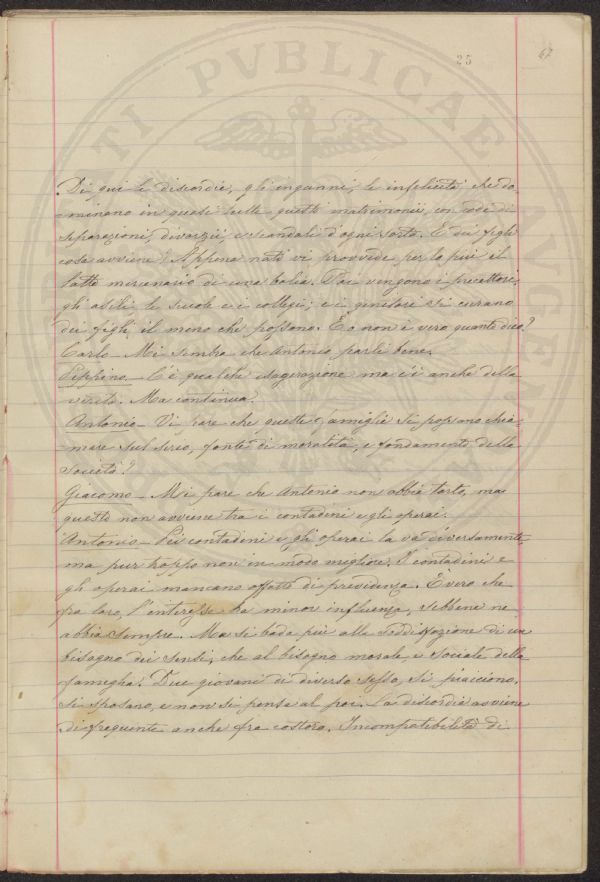 25 67
Di qui le discordie, gli inganni, le infelicità che do-
minano in quasi tutte questi matrimonii, con coda di
separazioni, divorzii, e scandali d'ogni sorta. E dei figli
cosa avviene? Appena nati vi provvede, per lo più il
latte mercenario di una balia. Poi vengono i precettori,
gli asili, le scuole e i collegi; e i genitori si curano
dei figli il meno che possono. È o non è vero quanto dico?
Carlo – Mi sembra che Antonio parli bene.
Peppino – C'è qualche esagerazione ma c'è anche della
verità. Ma continua.
Antonio – Vi pare che queste famiglie si possano chia-
mare sul serio, fonte di moralità, e fondamento della
Società?
Giacomo – Mi pare che Antonio non abbia torto, ma
questo non avviene tra i contadini e gli operai.
Antonio – Pei contadini e gli operai la va diversamente,
ma pur troppo non in modo migliore. I contadini e
gli operai mancano affatto di previdenza. È vero che
fra loro, l'interesse ha minor influenza, sebbene ne
abbia sempre. Ma si bada più alla soddisfazione di un
bisogno dei sensi, che al bisogno morale, e sociale della
famiglia. Due giovani di diverso sesso, si piacciono,
si sposano, e non si pensa al poi. La discordia avviene
di frequente anche fra costoro. Incompatibilità di
PVBLICAE